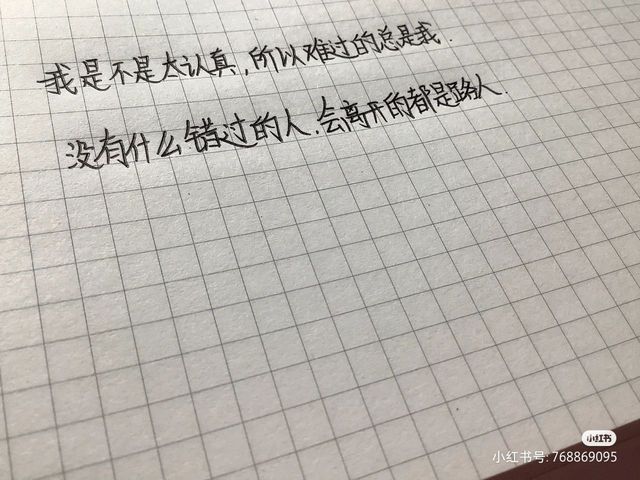 我是不是太认真，所以难过的总是我.
没有什么错过的人.会离开的都是路人.
小红书
小红书号: 768869095